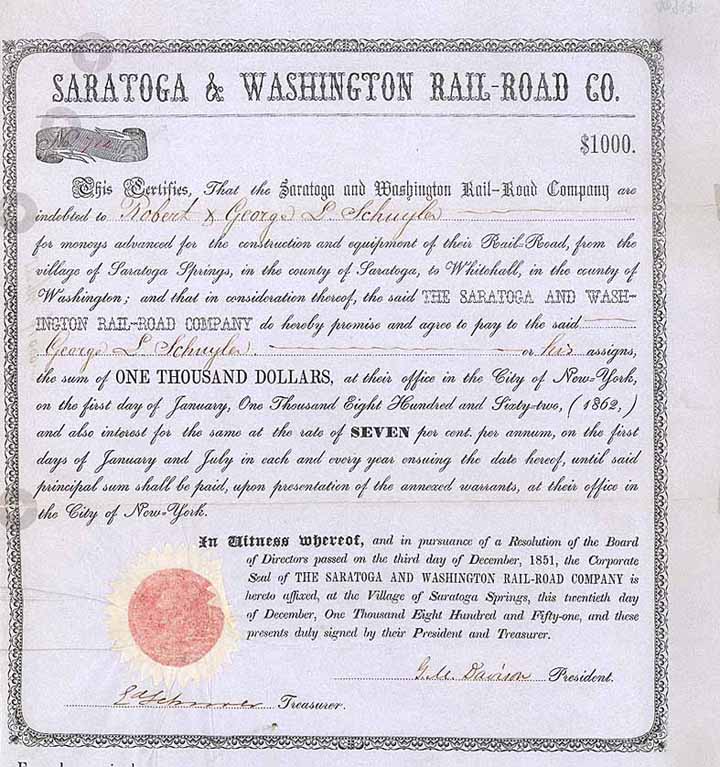 SARATOGA & WASHINGTON RAIL-ROAD CO.
No
$1000.
This Certifies, That the Saratoga and Washington Rail-Road Company are
indebted to Robert & George L. Schuyler
for moneys advanced for the construction and equipment of their Rail-Road, from the
village of Saratoga Springs, in the county of Saratoga, to Whitehall, in the county of
Washington; and that in consideration thereof, the said THE SARATOGA AND WASH-
INGTON RAIL-ROAD COMPANY do hereby promise and agree to pay to the said
George L. Schuyler. or his assigns,
the sum of ONE THOUSAND DOLLARS, at their office in the City of New-York,
on the first day of January, One Thousand Eight Hundred and Sixty-two, (1862,)
and also interest for the same at the rate of SEVEN per cent. per annum, on the first
days of January and July in each and every year ensuing the date hereof, until said
principal sum shall be paid, upon presentation of the annexed warrants, at their office in
the City of New-York.
In Witness whereof, and in pursuance of a Resolution of the Board
of Directors passed on the third day of December, 1851, the Corporate
Seal of THE SARATOGA AND WASHINGTON RAIL-ROAD COMPANY is
hereto affixed, at the Village of Saratoga Springs, this twentieth day
of December, One Thousand Eight Hundred and Fifty-one, and these
presents duly signed by their President and Treasurer.
G. M. Davison President.
Treasurer.